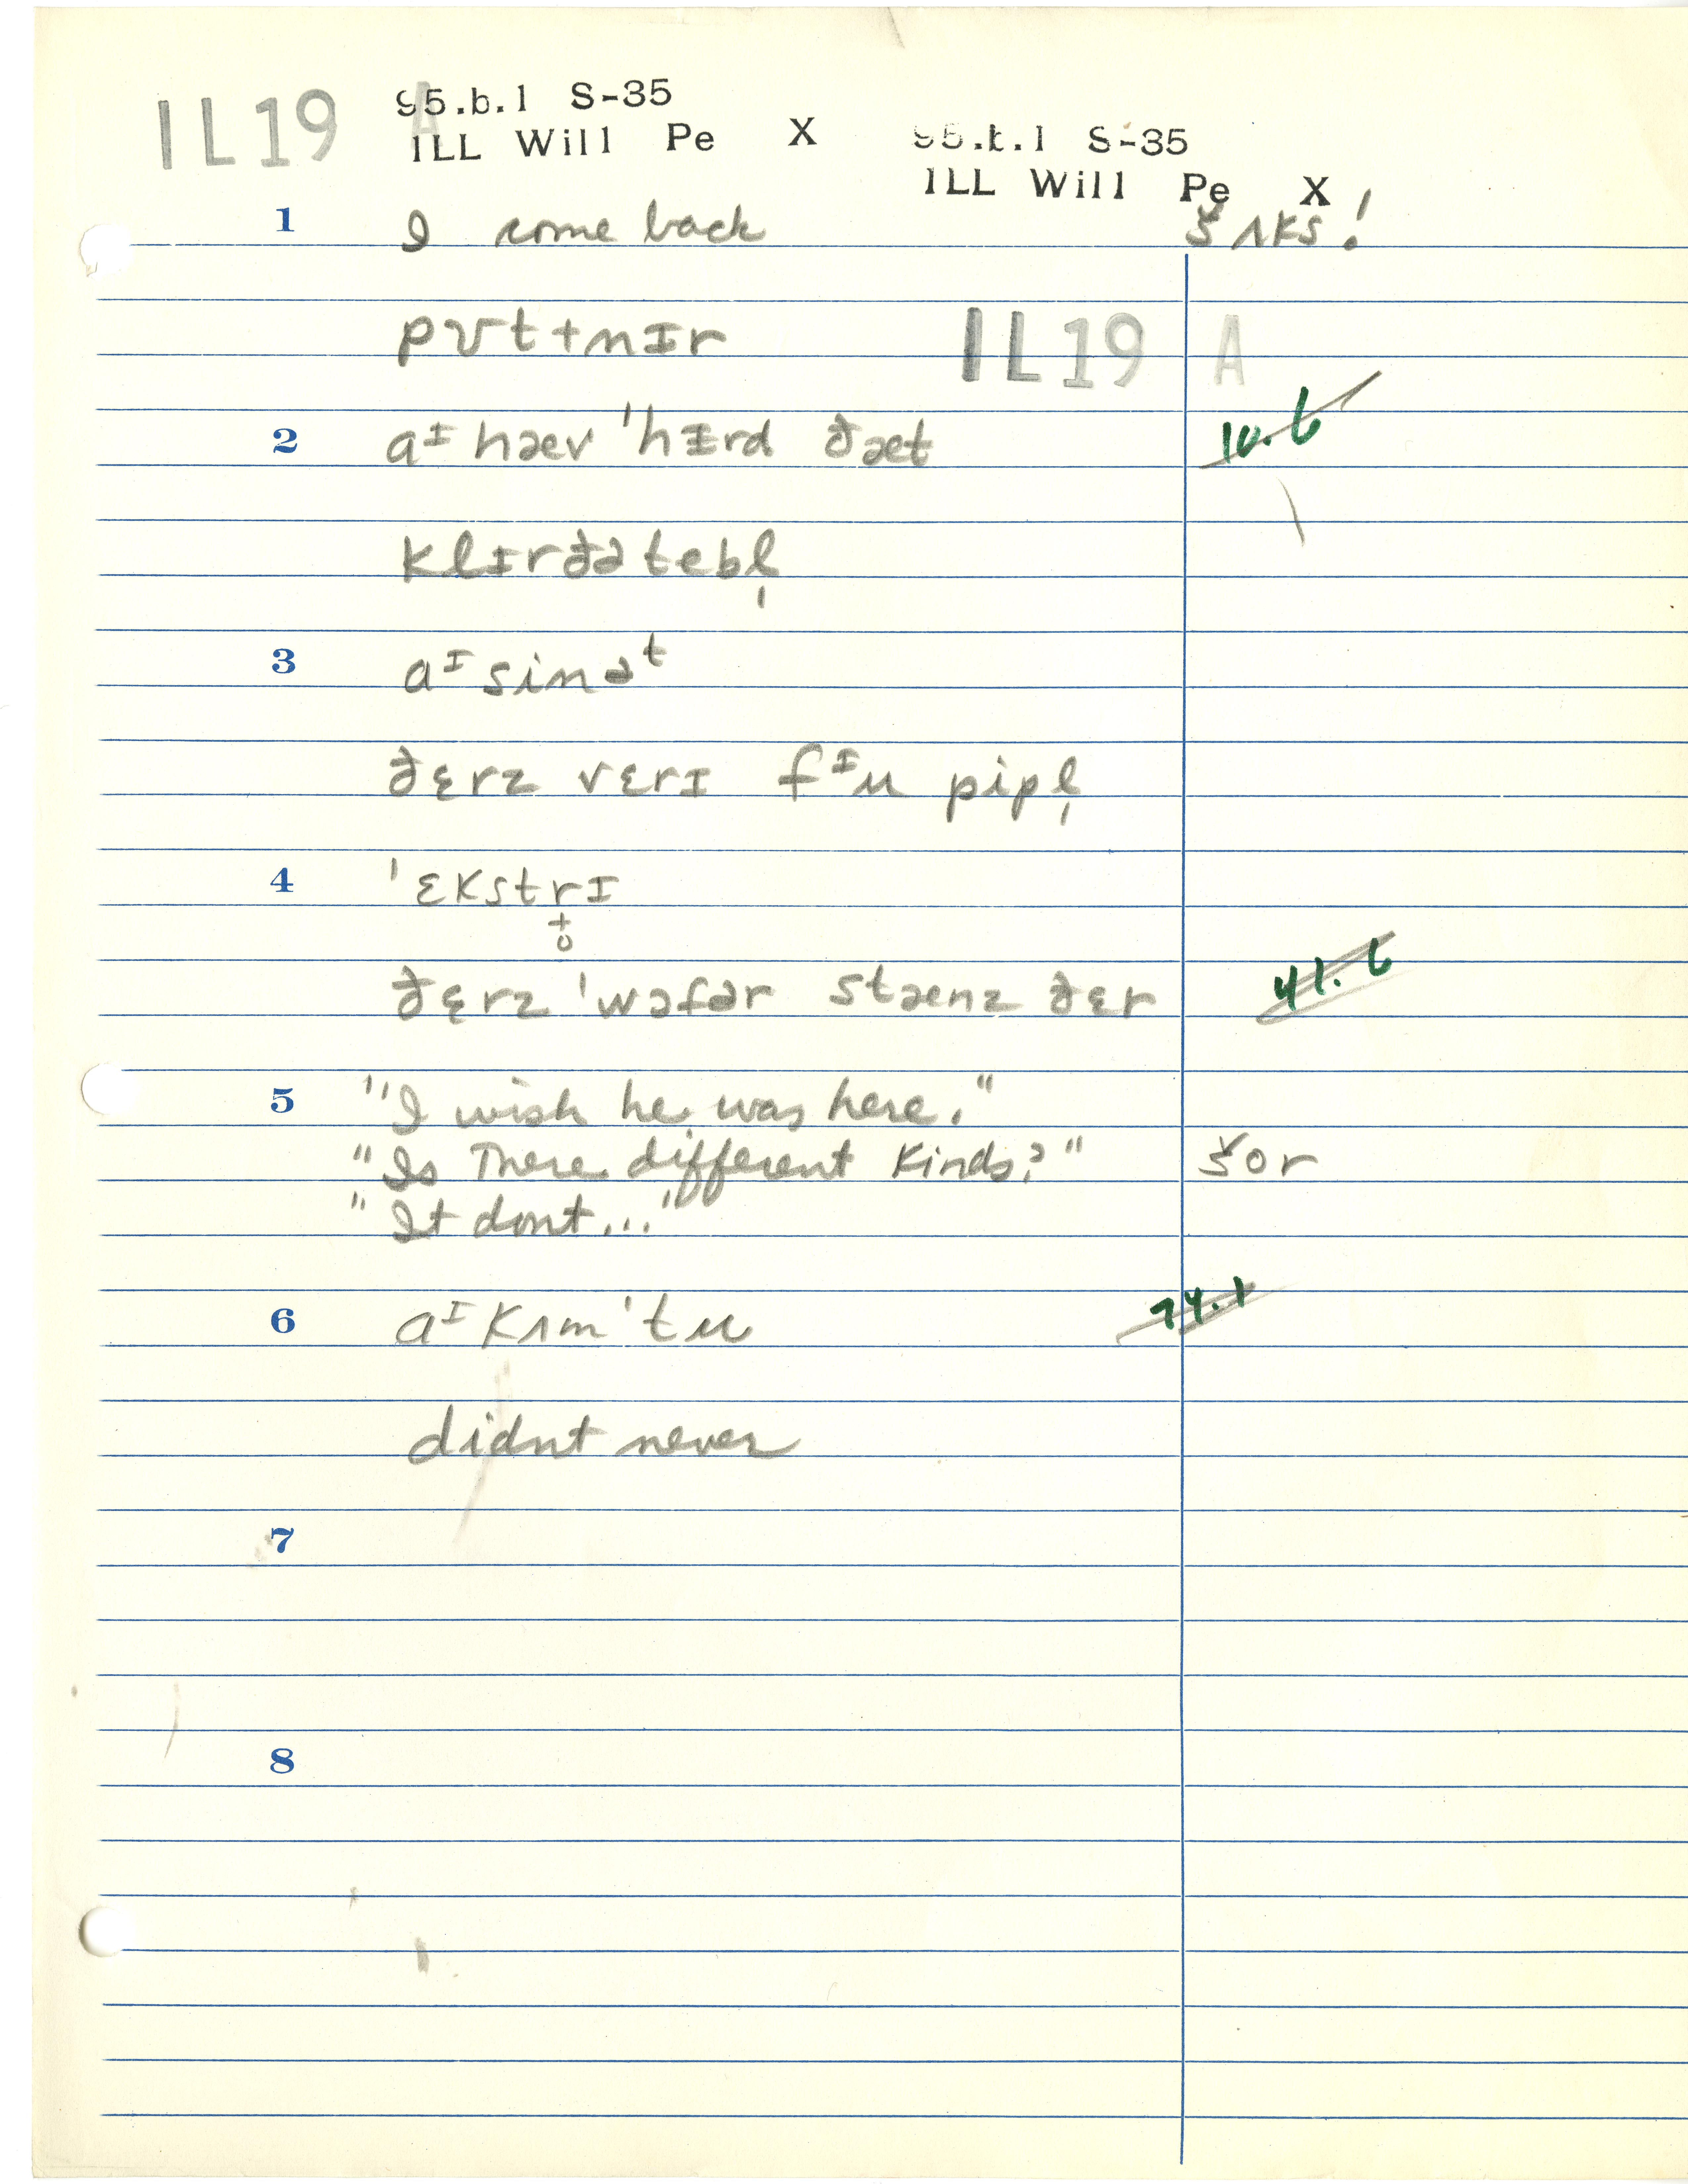 IL19 A 95.b.1 S-35
ILL Will Pe X 95.b.1 S-35
ILL Will Pe X
1 I come back šʌks!
pʊt + nɪr IL19 A
2 aᴵ hæv 'hɪrd ðæt 10.6
klɪrðə tebl̩
3 aᴵ sinəᵗ
ðɛrz vɛrɪ fᴵu pipl̩
4 'ɛkstrɪ
ðɛrz 'wəfər stænz ðɛr 41.6
5 "I wish he was here."
"Is there different kinds?" šor
"It dont..."
6 aᴵ kʌm 'tu 74.1
didnt never
7
8